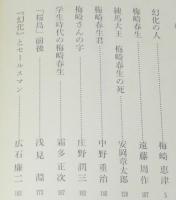 幻化の人　梅崎恵津
梅崎春生　遠藤周作
練馬大王　梅崎春生の死　安岡章太郎
梅崎春生君　中野重治
梅崎さんの字　庄野潤三
学生時代の梅崎春生　霜多正次
「桜島」前後　浅見淵
『幻化』とセールスマン　広石廉二